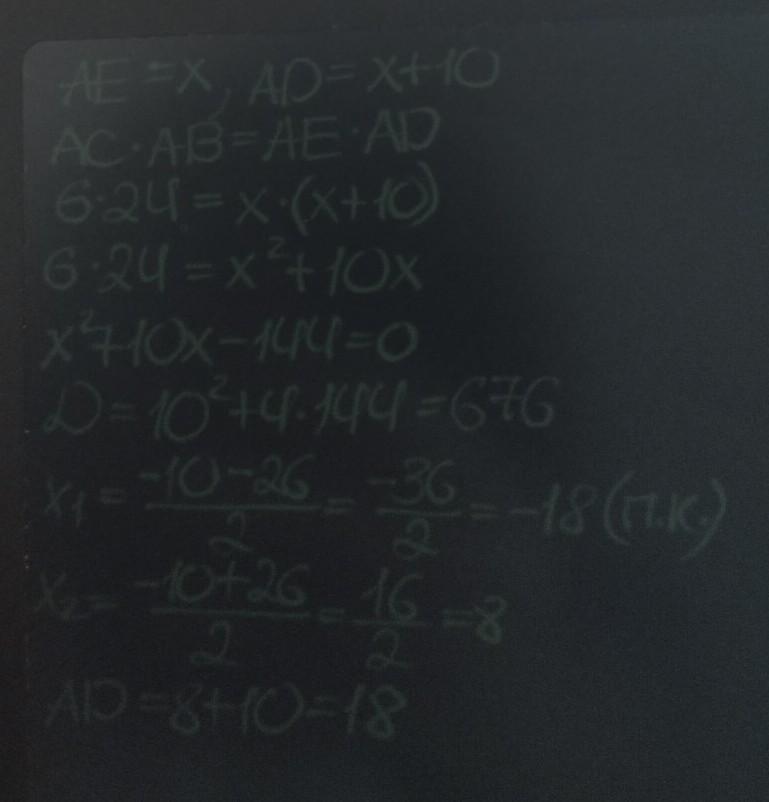 AE = x, AD = x+10
AC·AB = AE·AD
6·24 = x·(x+10)
6·24 = x²+10x
x²+10x-144=0
D = 10²+4·144 = 676
x₁ = (-10-26)/2 = -36/2 = -18 (п.к.)
x₂ = (-10+26)/2 = 16/2 = 8
AD = 8+10 = 18